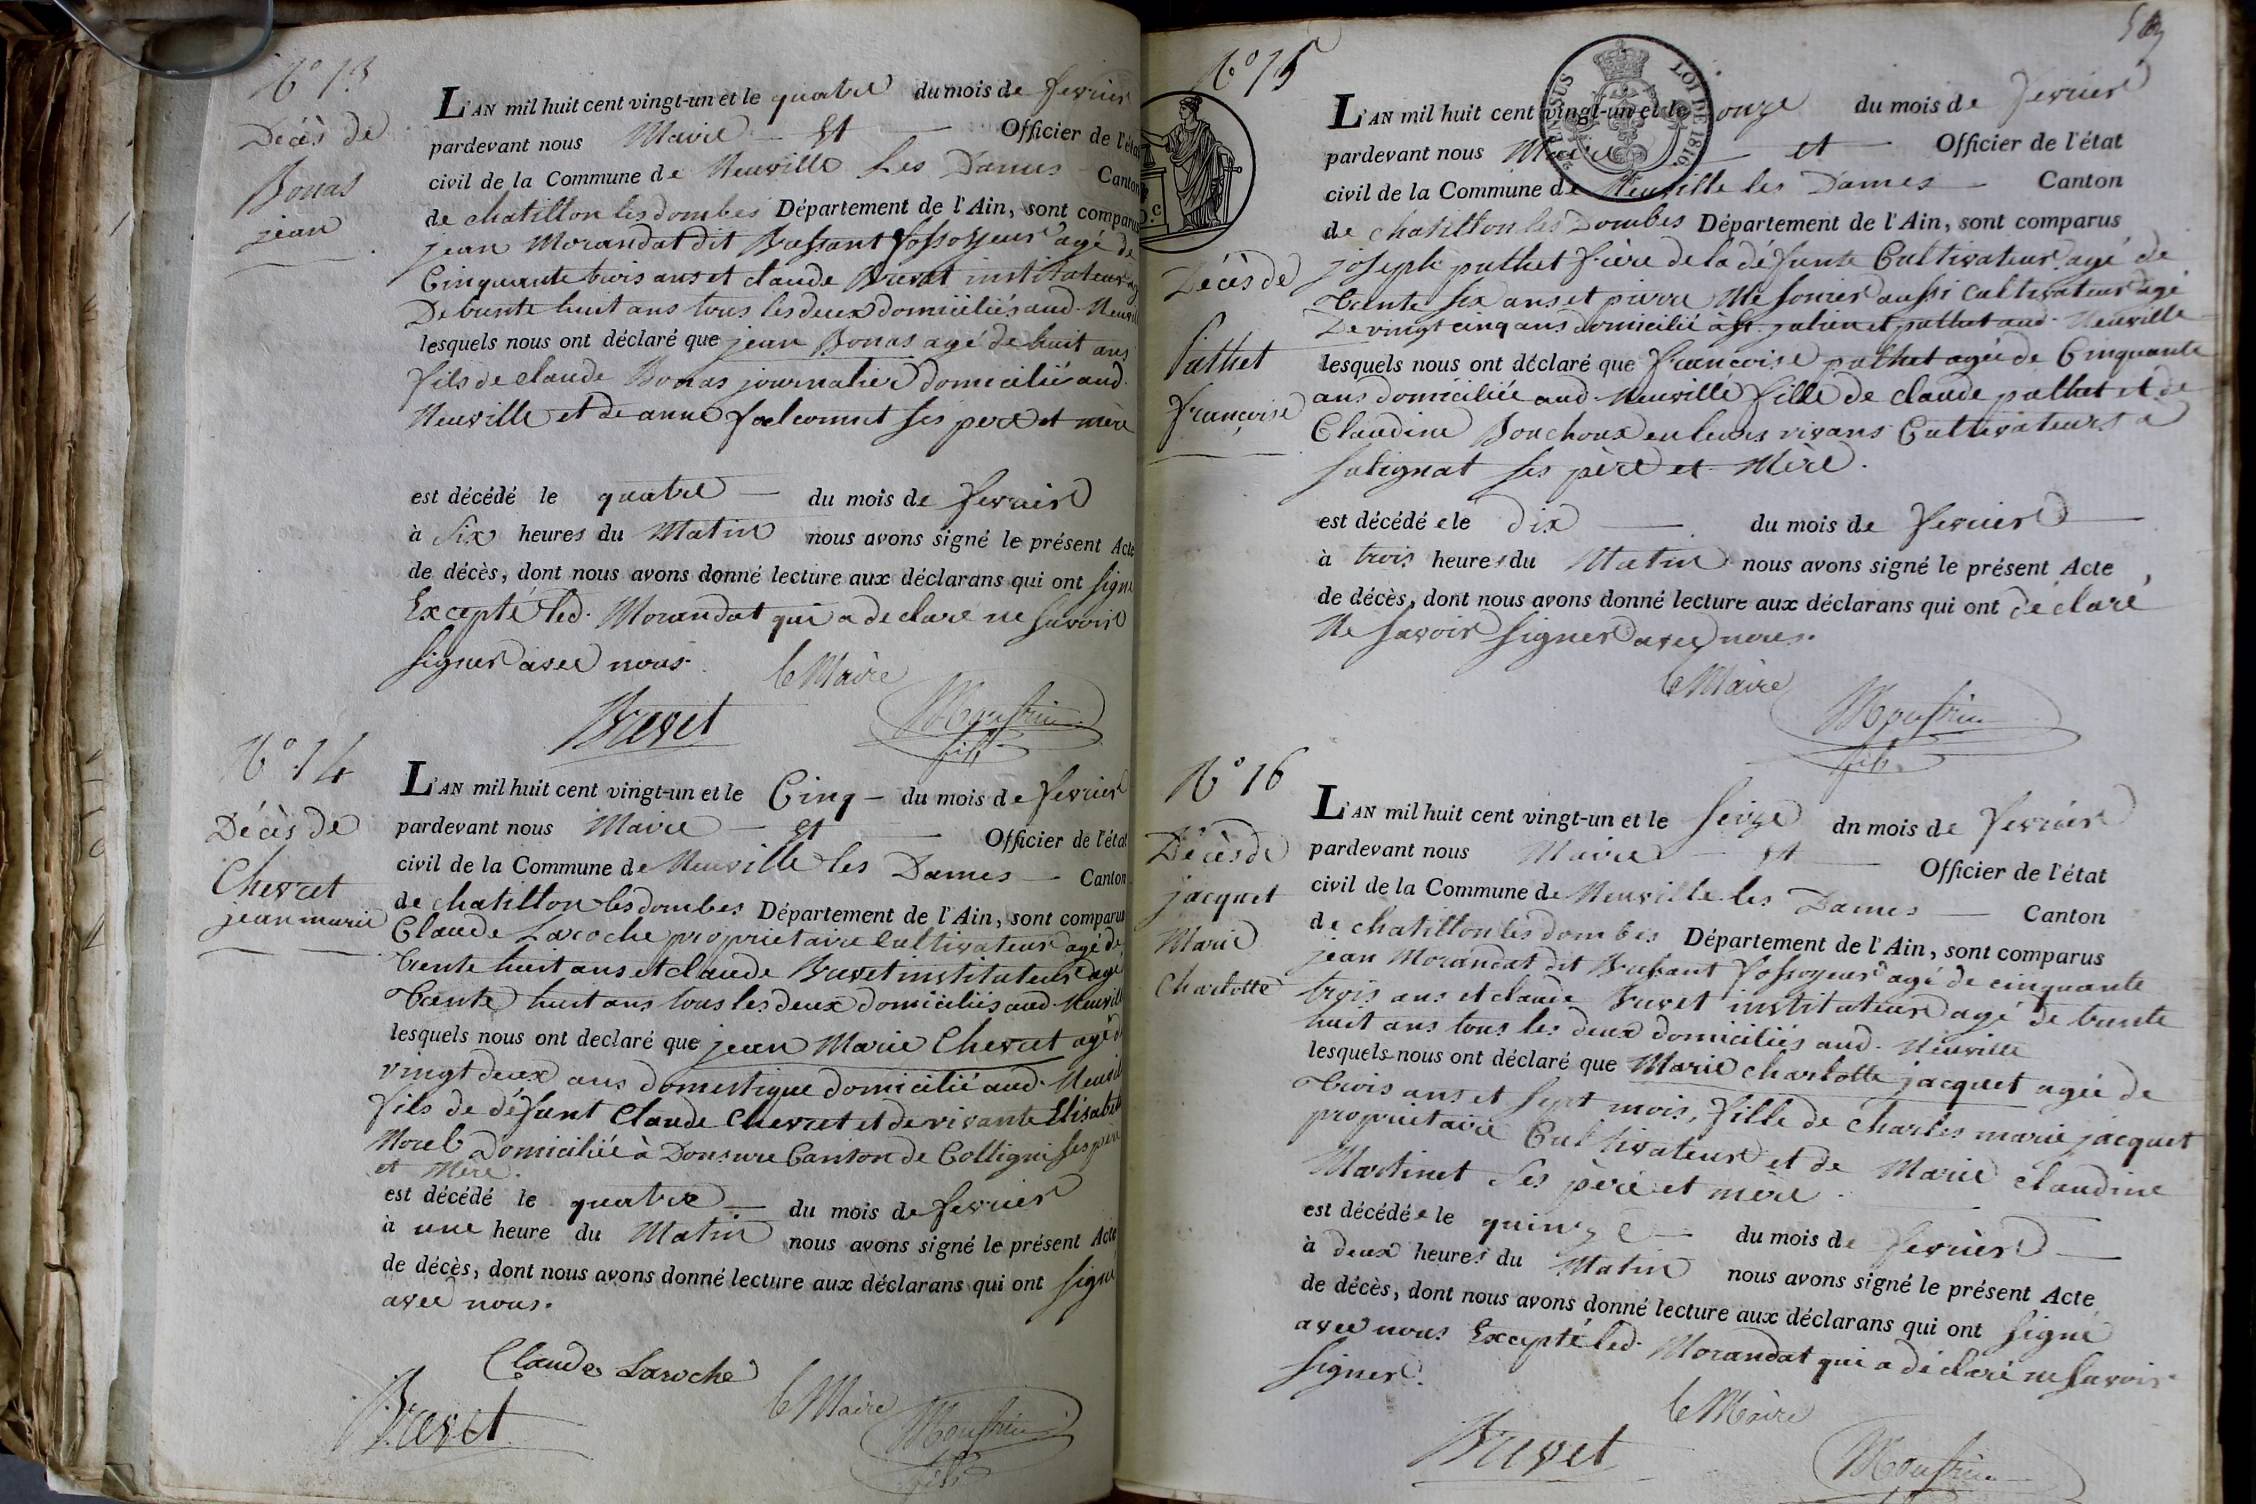 N° 13
Décès de
Bonas
jean
L'AN mil huit cent vingt-un et le quatre du mois de fevrier
pardevant nous Maire et Officier de l'état
civil de la Commune de Neuville les Dames Canton
de chatillon les dombes Département de l'Ain, sont comparus
jean Morandat dit Bressant fossoyeur agé de
Cinquante trois ans et claude Brevet instituteur agé
De trente huit ans tous les deux domiciliés aud. Neuville
lesquels nous ont déclaré que jean Bonas agé de huit ans
fils de claude Bonas journalier domicilié aud.
Neuville et de anne falconnet ses pere et mère
est décédé le quatre du mois de fevrier
à six heures du Matin nous avons signé le présent Acte
de décès, dont nous avons donné lecture aux déclarans qui ont signé
Excepté led. Morandat qui a declaré ne savoir
signer avec nous.
le Maire
Brevet
fils
N° 14
Décès de
Chevret
jean marie
L'AN mil huit cent vingt-un et le Cinq du mois de fevrier
pardevant nous Maire et Officier de l'état
civil de la Commune de Neuville les Dames Canton
de chatillon les dombes Département de l'Ain, sont comparus
Claude Laroche proprietaire Cultivateur agé de
trente huit ans et claude Brevet instituteur agé
trente huit ans tous les deux domiciliés aud. Neuville
lesquels nous ont declaré que jean Marie Chevret agé de
vingt deux ans domestique domicilié aud. Neuville
fils de défunt Claude Chevret et de vivante Elisabeth
Morel Domiciliée à Donsure Canton de Colligni ses père
et Mère.
est décédé le quatre du mois de fevrier
à une heure du Matin nous avons signé le présent Acte
de décès, dont nous avons donné lecture aux déclarans qui ont signé
avec nous.
Claude Laroche
le Maire
Brevet
fils
N° 15
Décès de
Pathet
françoise
LOI DE 1816.
L'AN mil huit cent vingt-un et le onze du mois de fevrier
pardevant nous Maire et Officier de l'état
civil de la Commune de Neuville les Dames Canton
de chatillon les Dombes Département de l'Ain, sont comparus
joseph pathet frère de la défunte Cultivateur agé de
trente six ans et pierre Mésonier aussi cultivateur agé
De vingt cinq ans domicilié à st. julien et pathet aud. Neuville
lesquels nous ont déclaré que françoise pathet agée de Cinquante
ans domiciliée aud. Neuville fille de claude pathet et de
Claudine Bouchoux en leurs vivans Cultivateurs à
Sulignat ses père et Mère.
est décédé e le dix du mois de fevrier
à trois heures du Matin nous avons signé le présent Acte
de décès, dont nous avons donné lecture aux déclarans qui ont déclaré
Ne savoir signer avec nous.
le Maire
fils
N° 16
Décès de
jacquet
Marie
Charlotte
L'AN mil huit cent vingt-un et le seize dn mois de fevrier
pardevant nous Maire et Officier de l'état
civil de la Commune de Neuville les Dames Canton
de chatillon les dombes Département de l'Ain, sont comparus
jean Morandat dit Bressant fossoyeur agé de cinquante
trois ans et claude Brevet instituteur agé de trente
huit ans tous les deux domiciliés aud. Neuville
lesquels nous ont déclaré que Marie charlotte jacquet agée de
trois ans et sept mois, fille de Charles marie jacquet
proprietaire Cultivateur et de Marie claudine
Martinet ses père et mère.
est décédé e le quinze du mois de fevrier
à deux heures du Matin nous avons signé le présent Acte
de décès, dont nous avons donné lecture aux déclarans qui ont signé
avec nous Excepté led. Morandat qui a déclaré ne savoir
signer.
le Maire
Brevet